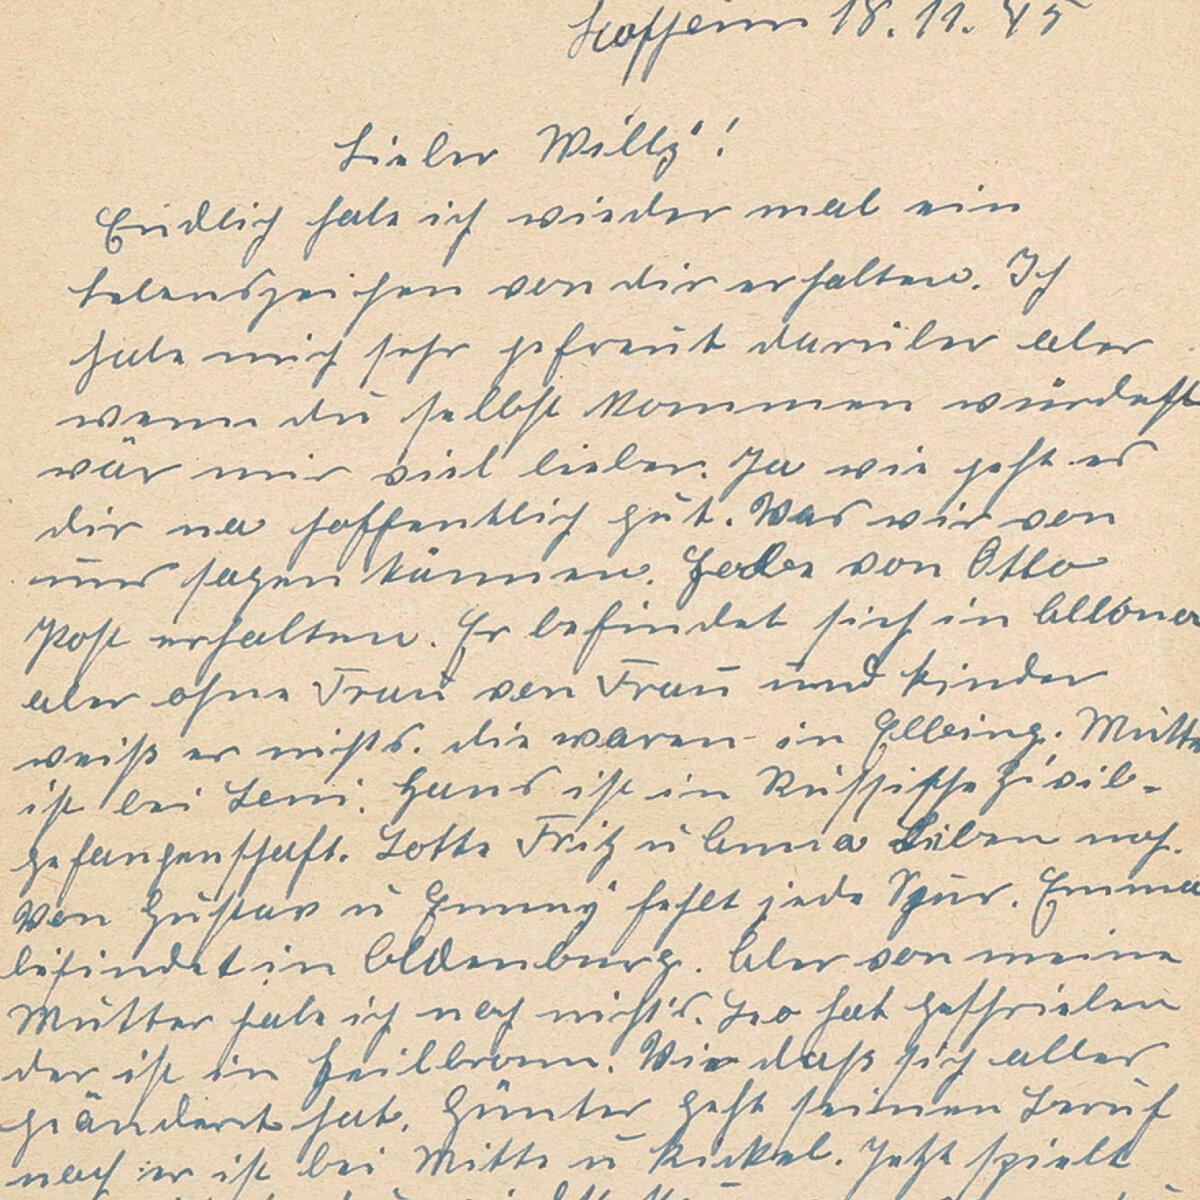 18.11.45
Lieber Willy!
Endlich habe ich wieder mal ein
Lebenszeichen von dir erhalten. Ich
habe mich sehr gefreut darüber aber
wenn du selbst kommen würdest
wär mir viel lieber. Ja wie geht es
dir na hoffentlich gut. Was wir von
uns sagen können. Habe von Otto
Post erhalten. Er befindet sich in Altona
aber ohne Frau von Frau und Kinder
weiß er nichts. die waren in Elbing. Mutte
ist bei Leni. Hans ist in Russische Zivil-
gefangenschaft. Lotte Fritz u Anna leben noch.
Von Gustav u Emmy fehlt jede Spur. Emma
befindet in Oldenburg. Aber von meine
Mutter habe ich noch nichts. Leo hat geschrieben
der ist in Heilbronn. Wie daß sich alles
geändert hat. Günter geht seinen Beruf
nach er ist bei Mitte u Kickel. Jetzt spielt